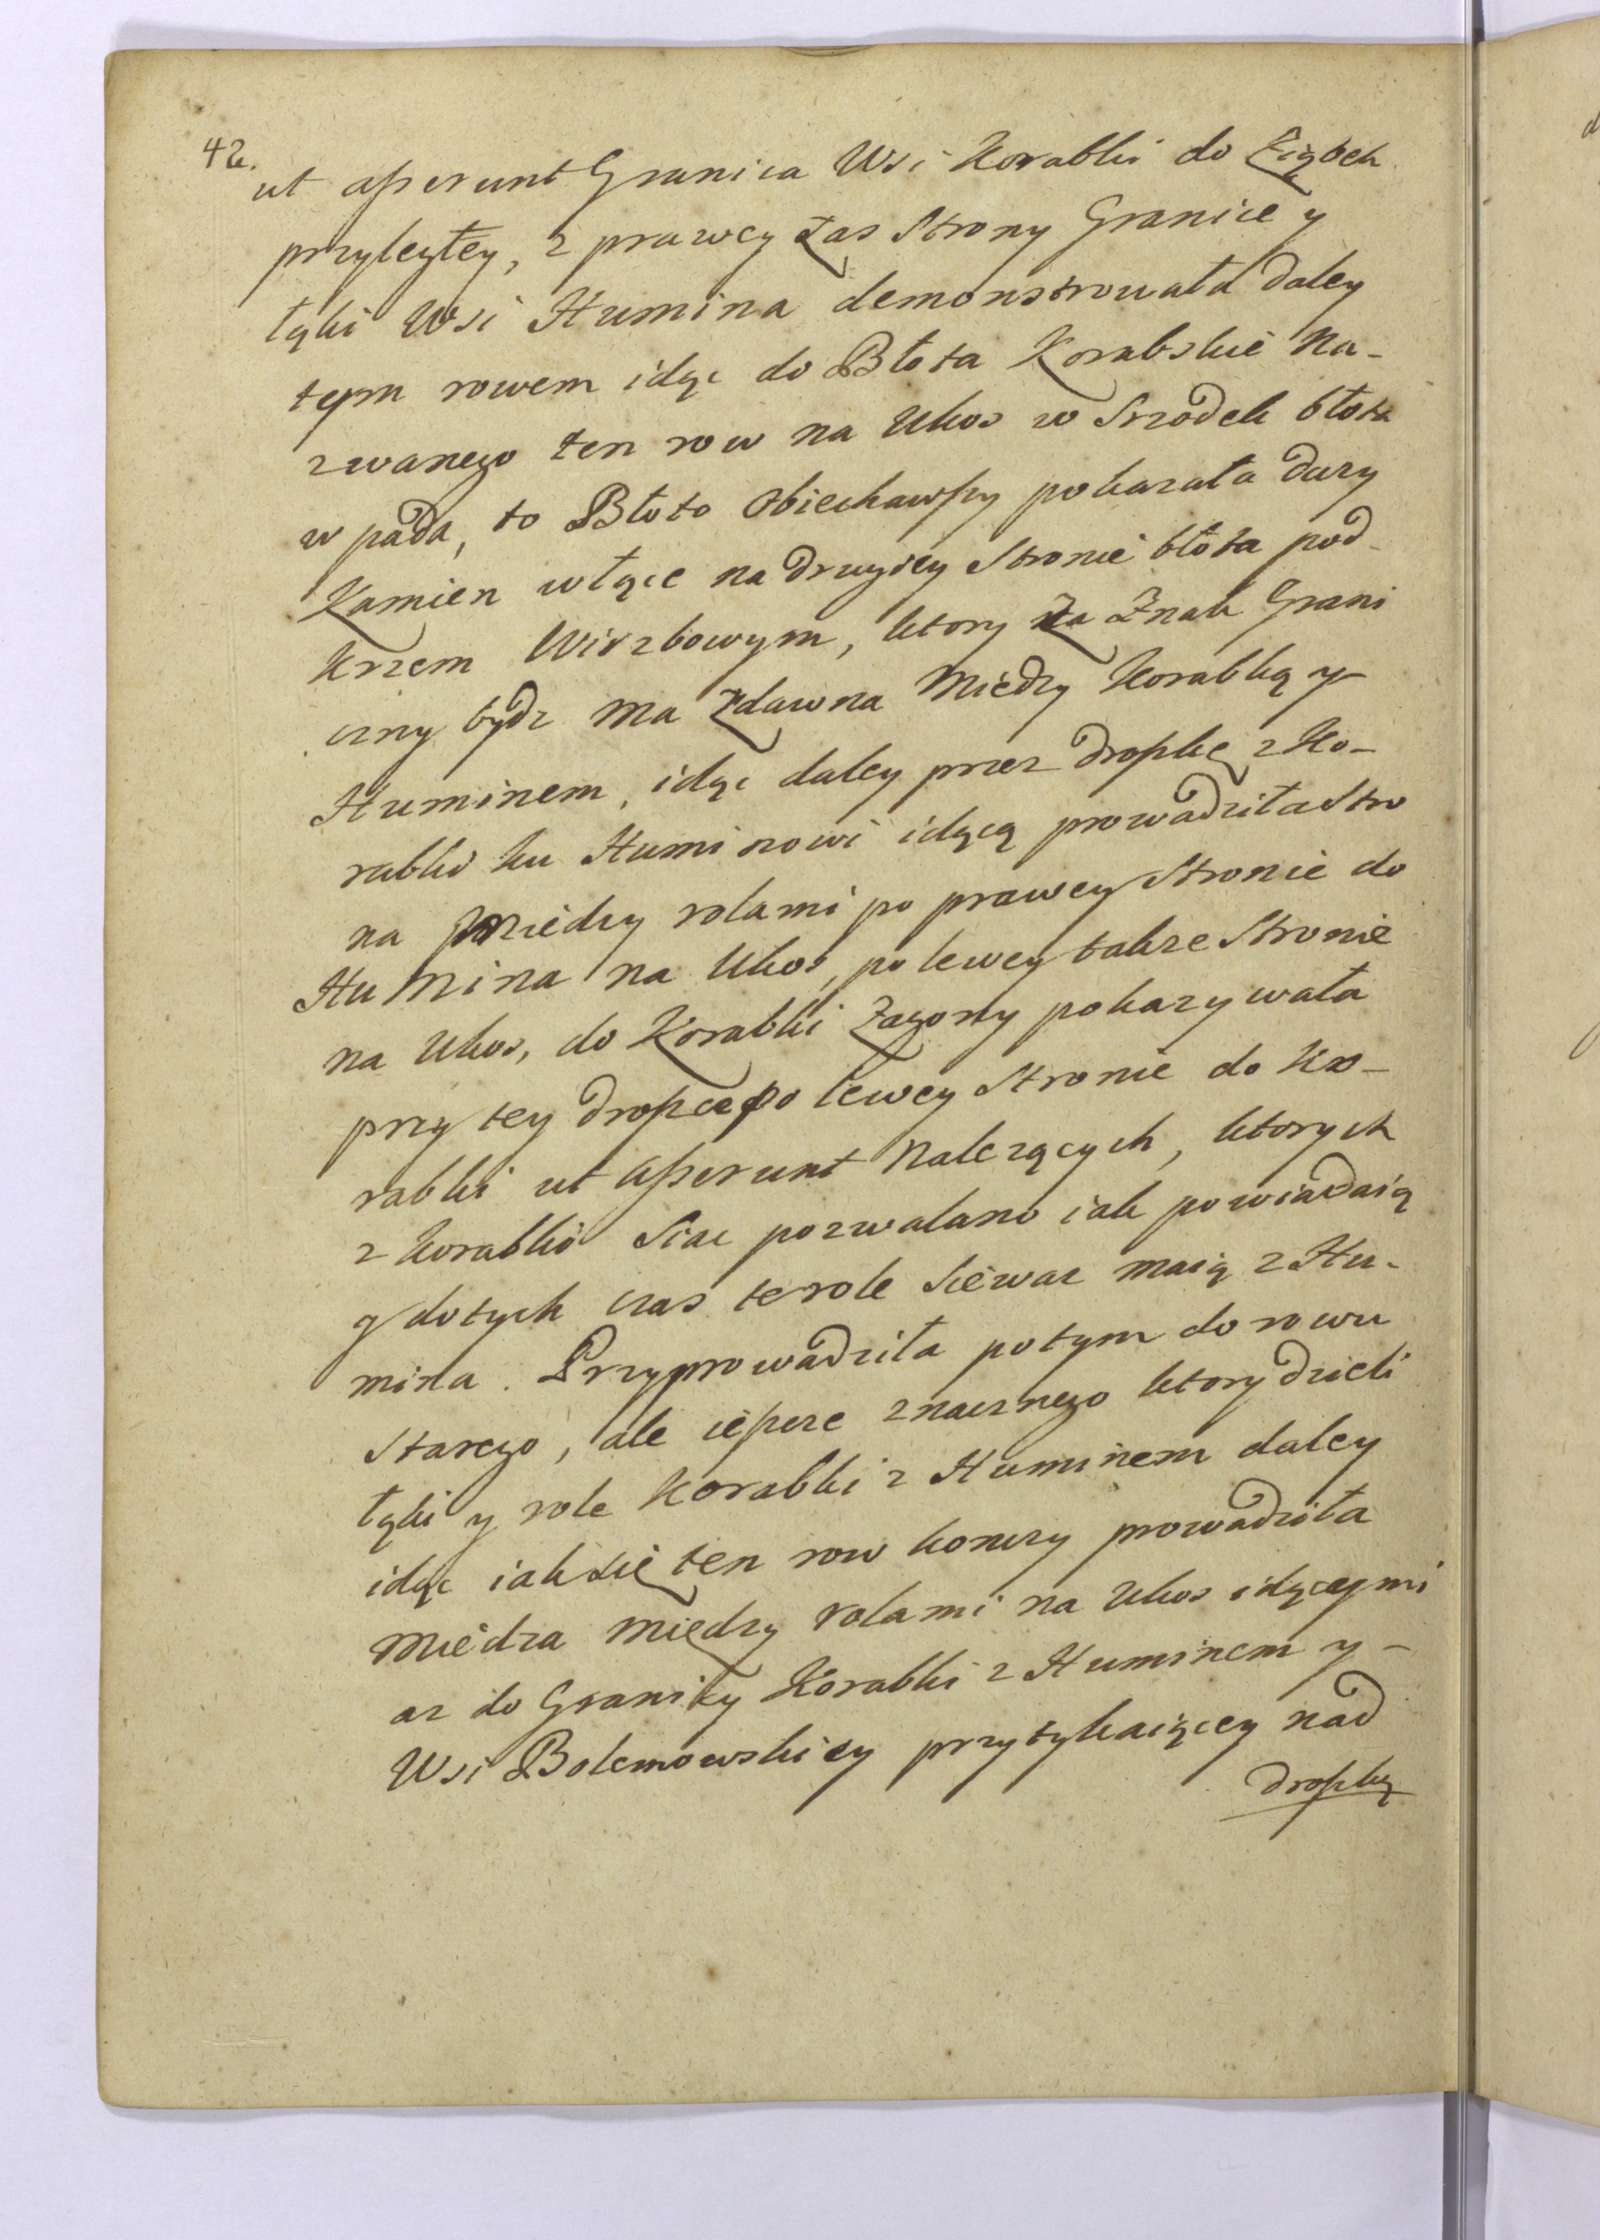 42.
ut asserunt Granica Wsi Korabki do Ziąbek
przyległey, z prawey zas Strony Granice y
łąki Wsi Humina demonstrowała daley
tym rowem idąc do Błota Korabskie Na-
zwanego ten row na Ukos w Srzodek błota
w pada, to Błoto Obiechawszy pokazała duzy
Kamien w łące na drugiey Stronie błota pod
Krzem Wirzbowym, ktory za Znak Grani
czny bydz ma zdawna Między Korabką y
Huminem, idąc daley przez drożkę z Ko-
rabki ku Huminowi idącą prowadziła Stro
na Między rolami po prawey Stronie do
Humina na Ukos, po lewey takze Stronie
na Ukos, do Korabki Zagony pokazywała
przy tey drożce po lewey Stronie do Ko-
rabki ut asserunt Nalezących, ktorych
z Korabki Siac pozwalano iak powiadaią
y dotych czas te role Siewac maią z Hu-
mina. Przyprowadziła potym do rowu
Starego, ale ieszcze znacznego ktory dzieli
łąki y role Korabki z Huminem daley
idąc iak się ten row konczy prowadziła
Miedza Między rolami na Ukos idącymi
az do Granicy Korabki z Huminem y -
Wsi Bolemowskiey przytykaiącey nad
drożką